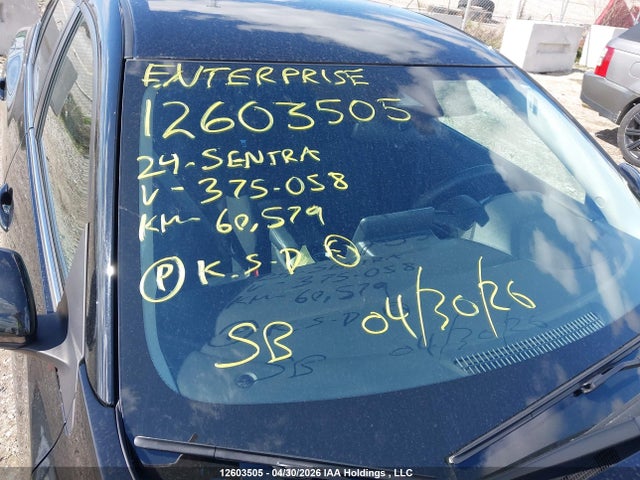 ENTERPRISE
12603505
24-SENTRA
V-375-058
KM-60,579
P K.S.D
SB 04/30/26
12603505 - 04/30/2026 IAA Holdings , LLC